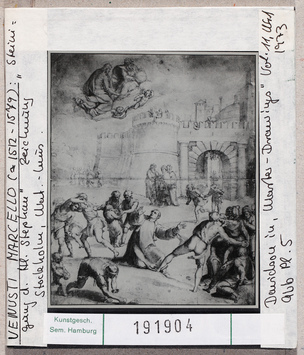 VENUSTI MARCELLO (ca 1512-1579): Steini=
gung d. Hl. Stephanus" Zeichnung
Stockholm, Nat.-Mus.
Davidson in, Master-Drawings" Vol. 11, No 1
1973
Abb Pl. 5
Kunstgesch.
Sem. Hamburg
191904